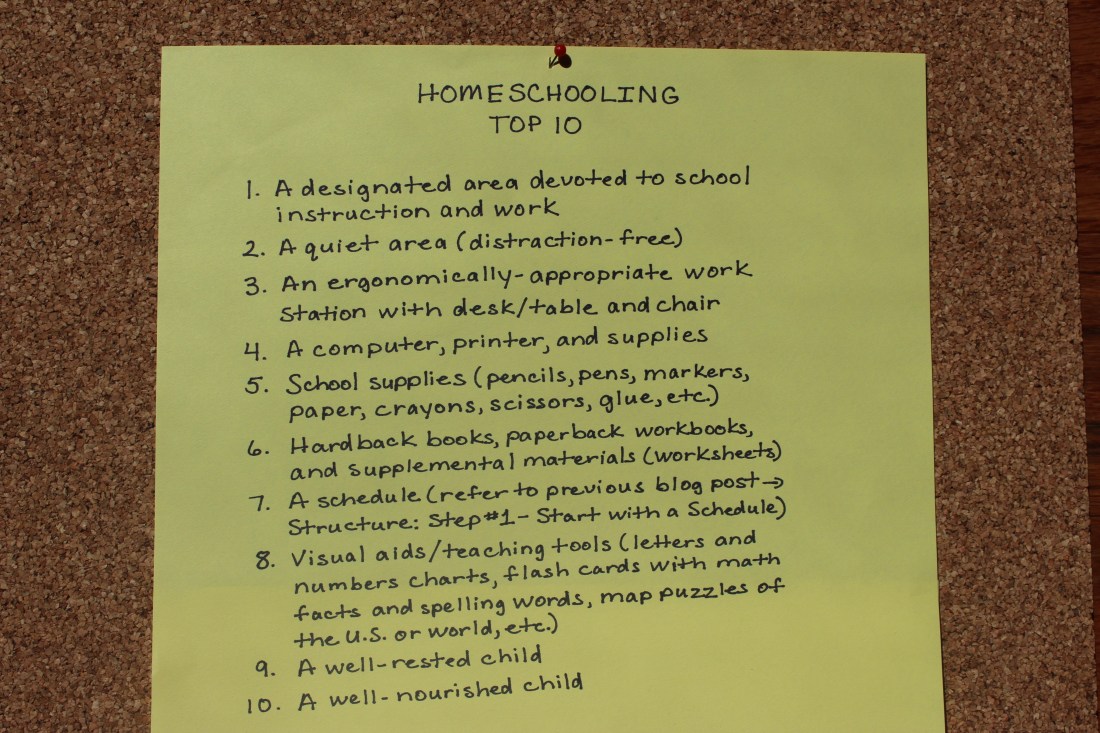 HOMESCHOOLING
TOP 10
1. A designated area devoted to school
instruction and work
2. A quiet area (distraction-free)
3. An ergonomically-appropriate work
station with desk/table and chair
4. A computer, printer, and supplies
5. School supplies (pencils, pens, markers,
paper, crayons, scissors, glue, etc.)
6. Hardback books, paperback workbooks,
and supplemental materials (worksheets)
7. A schedule (refer to previous blog post→
Structure: Step #1 - Start with a Schedule)
8. Visual aids/teaching tools (letters and
numbers charts, flash cards with math
facts and spelling words, map puzzles of
the U.S. or world, etc.)
9. A well-rested child
10. A well-nourished child